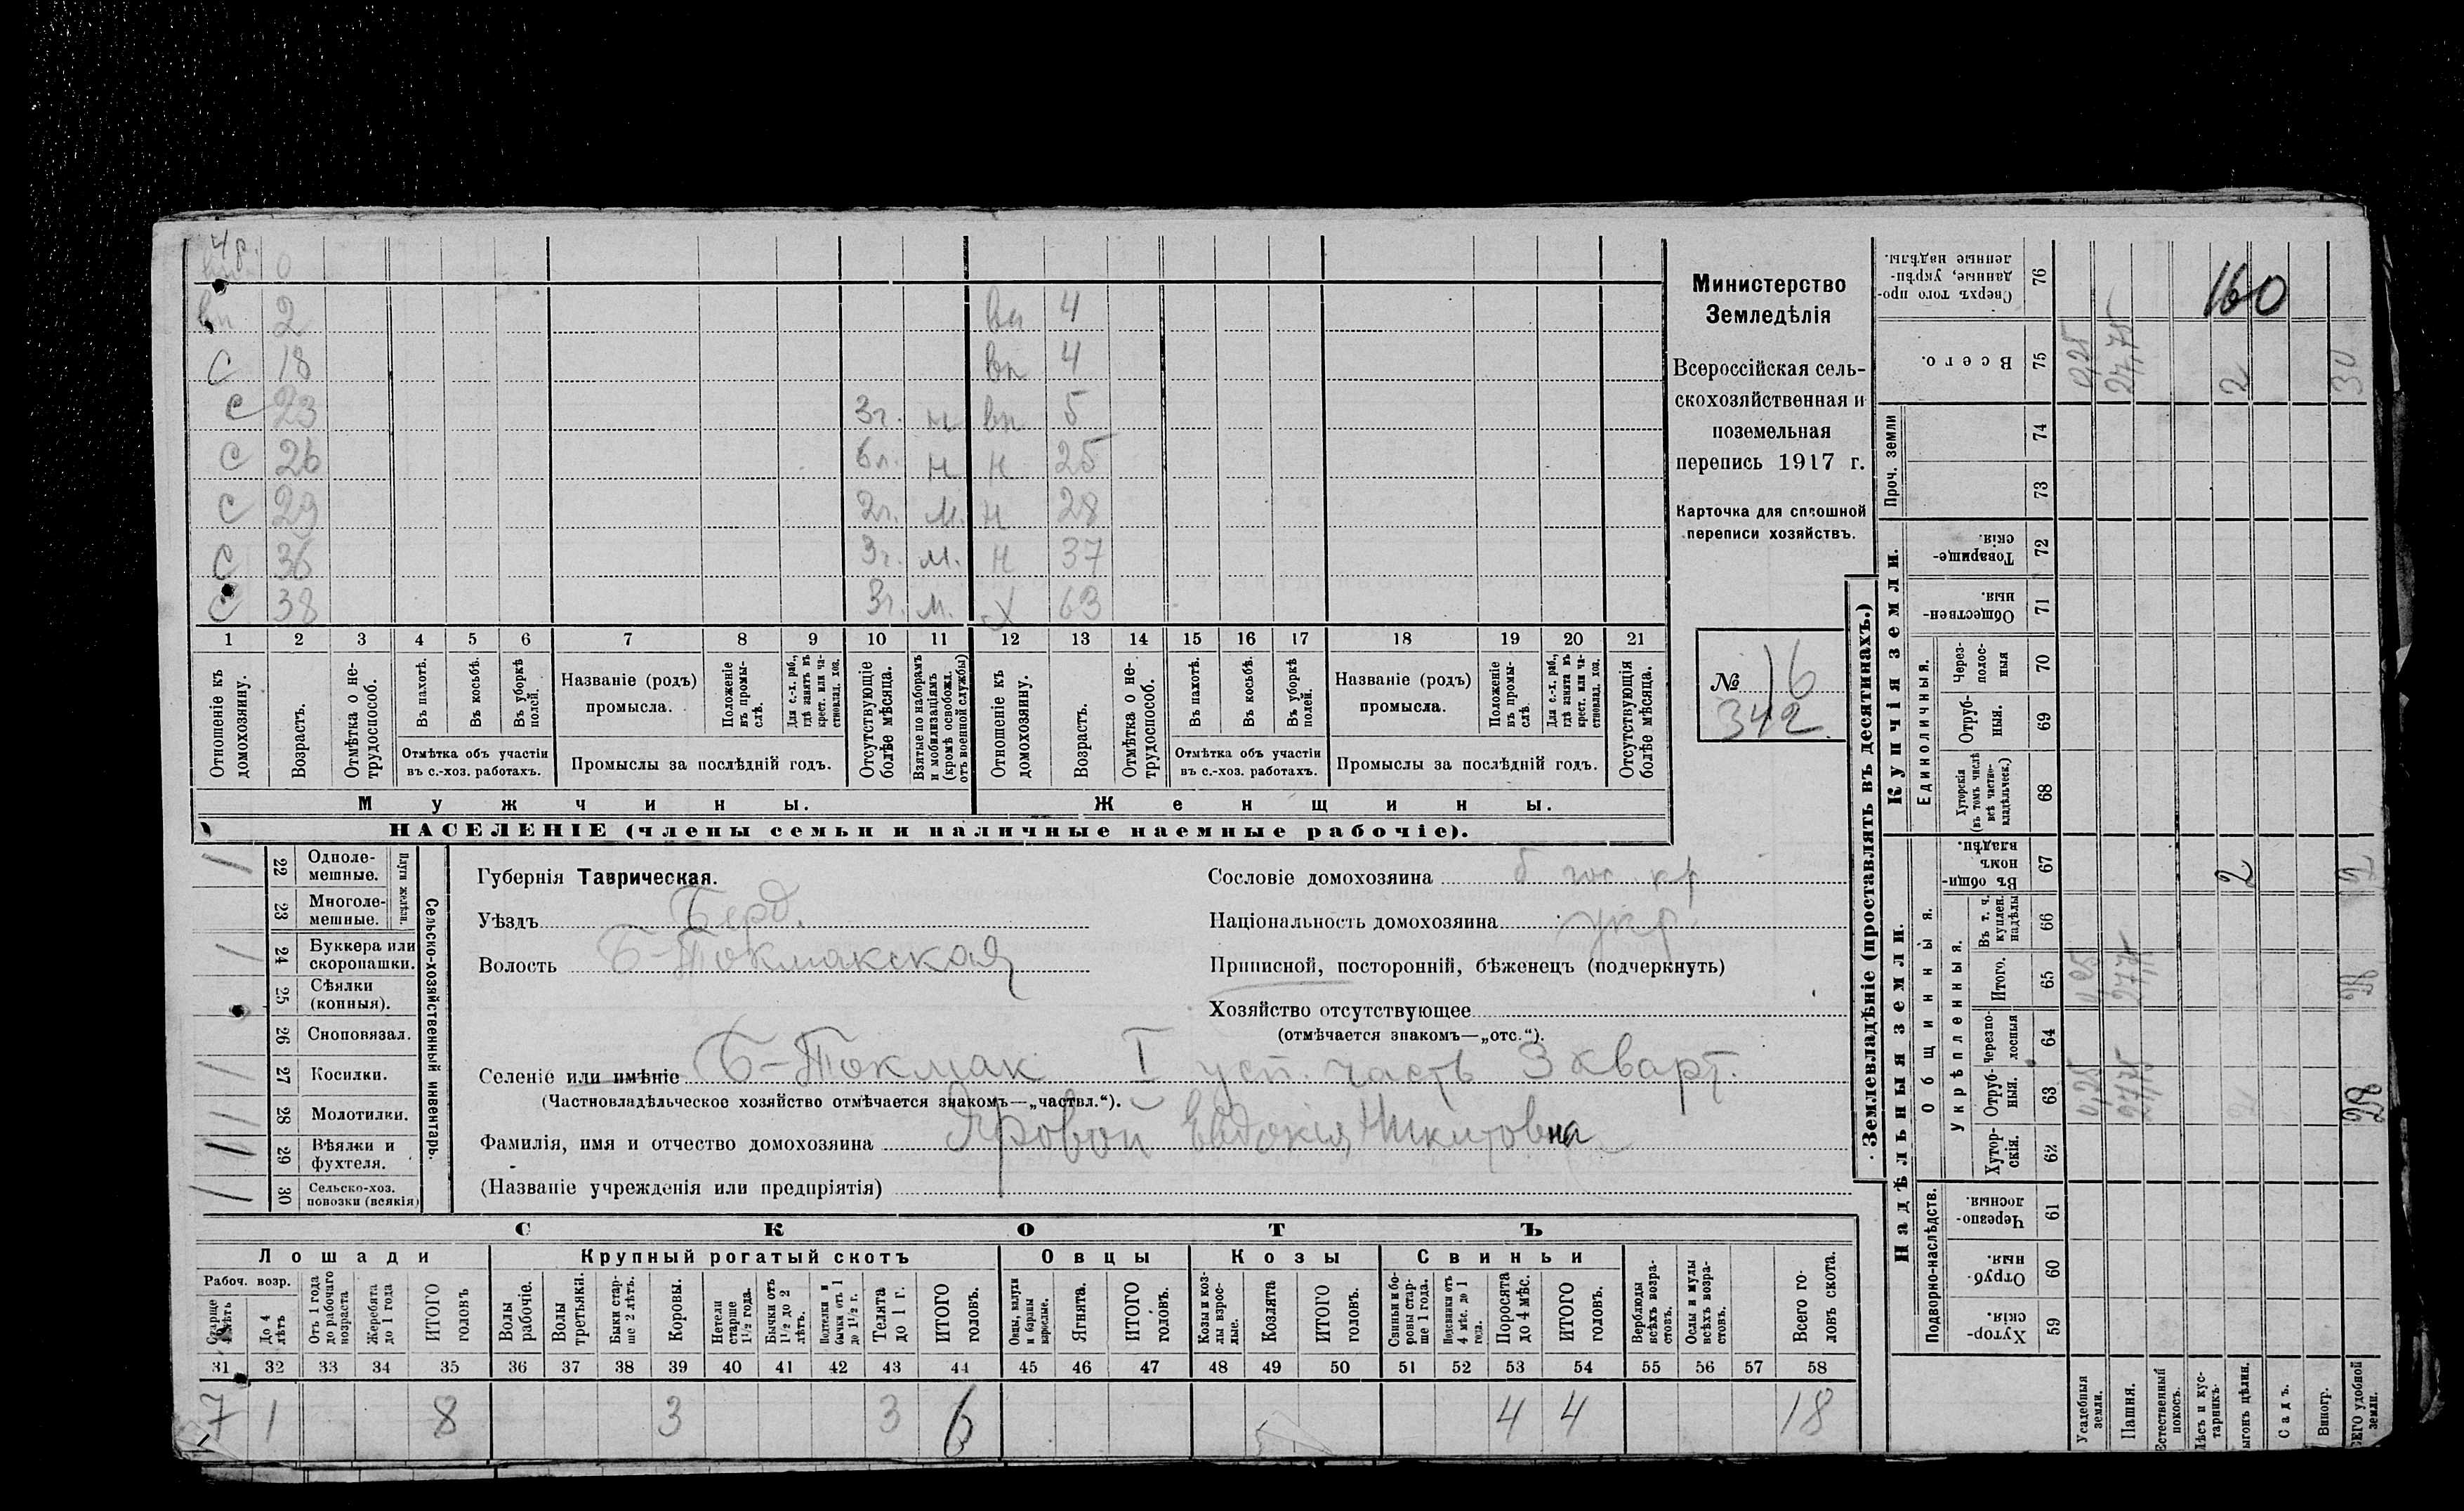 4 р.
0
вн 2 вн 4
С 18 вн 4
С 23 3г. н вн 5
С 26 6л. н н 25
С 29 2г. м. н 28
С 36 3г. м. н 37
С 38 3г. м. Х 63
1 2 3 4 5 6 7 8 9 10 11 12 13 14 15 16 17 18 19 20 21
Отношеніе къ домохозяину.
Возрастъ.
Отмѣтка о не-трудоспособ.
Въ пахотѣ.
Въ косьбѣ.
Въ уборкѣ полей.
Отмѣтка объ участіи въ с.-хоз. работахъ.
Названіе (родъ) промысла.
Положеніе въ промы-слѣ.
Для с.-х. раб., гдѣ занятъ въ крест. или ча-стновлад. хоз.
Промыслы за послѣдній годъ.
Отсутствующіе болѣе мѣсяца.
Взятые по наборамъ и мобилизаціямъ (кромѣ освобожд. отъ военной службы)
Отношеніе къ домохозяину.
Возрастъ.
Отмѣтка о не-трудоспособ.
Въ пахотѣ.
Въ косьбѣ.
Въ уборкѣ полей.
Отмѣтка объ участіи въ с.-хоз. работахъ.
Названіе (родъ) промысла.
Положеніе въ промы-слѣ.
Для с.-х. раб., гдѣ занята въ крест. или ча-стновлад. хоз.
Промыслы за послѣдній годъ.
Отсутствующія болѣе мѣсяца.
Мужчины.
Женщины.
НАСЕЛЕНІЕ (члены семьи и наличные наемные рабочіе).
Министерство
Земледѣлія
Всероссійская сель-
скохозяйственная и
поземельная
перепись 1917 г.
Карточка для сплошной
переписи хозяйствъ.
№ 16
342
22 Однолемешные.
23 Многолемешные.
Плуги желѣзн.
24 Буккера или скоропашки.
25 Сѣялки (конныя).
26 Сноповязал.
27 Косилки.
28 Молотилки.
29 Вѣялки и фухтеля.
30 Сельско-хоз. повозки (всякія)
Сельско-хозяйственный инвентарь.
Губернія Таврическая.
Уѣздъ Берд.
Волость Б-Токмакская
Сословіе домохозяина б. гос. кр
Національность домохозяина укр.
Приписной, посторонній, бѣженецъ (подчеркнуть)
Хозяйство отсутствующее
(отмѣчается знакомъ—„отс.“).
Селеніе или имѣніе Б-Токмак I уст. часть 3 кварт.
(Частновладѣльческое хозяйство отмѣчается знакомъ—„частвл.“).
Фамилія, имя и отчество домохозяина Яровой Евдокія Никитовна
(Названіе учрежденія или предпріятія)
СКОТЪ
Лошади
Крупный рогатый скотъ
Овцы
Козы
Свиньи
Рабоч. возр.
Старше 4 лѣтъ
До 4 лѣтъ
Отъ 1 года до рабочаго возраста
Жеребята до 1 года
ИТОГО головъ
Волы рабочіе.
Волы третьяки.
Быки стар-ше 2 лѣтъ.
Коровы.
Нетели старше 1½ года.
Бычки отъ 1½ до 2 лѣтъ.
Подтелки и бычки отъ 1 до 1½ г.
Телята до 1 г.
ИТОГО головъ.
Овцы, валухи и бараны взрослые.
Ягнята.
ИТОГО головъ.
Козы и коз-лы взрос-лые.
Козлята
ИТОГО головъ.
Свиньи и бо-ровы стар-ше 1 года.
Подсвинки отъ 4 мѣс. до 1 года.
Поросята до 4 мѣс.
ИТОГО головъ.
Верблюды всѣхъ возра-стовъ.
Ослы и мулы всѣхъ возра-стовъ.
Всего го-ловъ скота.
31 32 33 34 35 36 37 38 39 40 41 42 43 44 45 46 47 48 49 50 51 52 53 54 55 56 57 58
7 1 8 3 3 6 4 4 18
Землевладѣніе (проставлять въ десятинахъ.)
Купчія земли.
Надѣльныя земли.
Сверхъ того про-данные, укрѣп-ленные надѣлы. 76
Всего. 75
Проч. земли 74 73
Товарище-скія. 72
Обществен-ныя. 71
Единоличныя.
Через-полос-ныя 70
Отруб-ныя. 69
Хуторскія (въ томъ числѣ всѣ частно-владѣльческ.) 68
Общинныя.
Въ общин-номъ владѣн. 67
Укрѣпленныя.
Въ т. ч. куплен. надѣлы 66
Итого. 65
Черезпо-лосныя 64
Отруб-ныя. 63
Хутор-скія. 62
Подворно-наслѣдств.
Черезпо-лосныя. 61
Отруб-ныя. 60
Хутор-скія. 59
Усадебныя земли. 0,25 0,25 0,25
Пашня. 27,75 27,75 27,75
Естественный покосъ.
Лѣсъ и кус-тарникъ.
ыгонъ цѣлин. 2 2
Садъ.
Виногр.
СЕГО удобной земли. 28 28 2 30
160